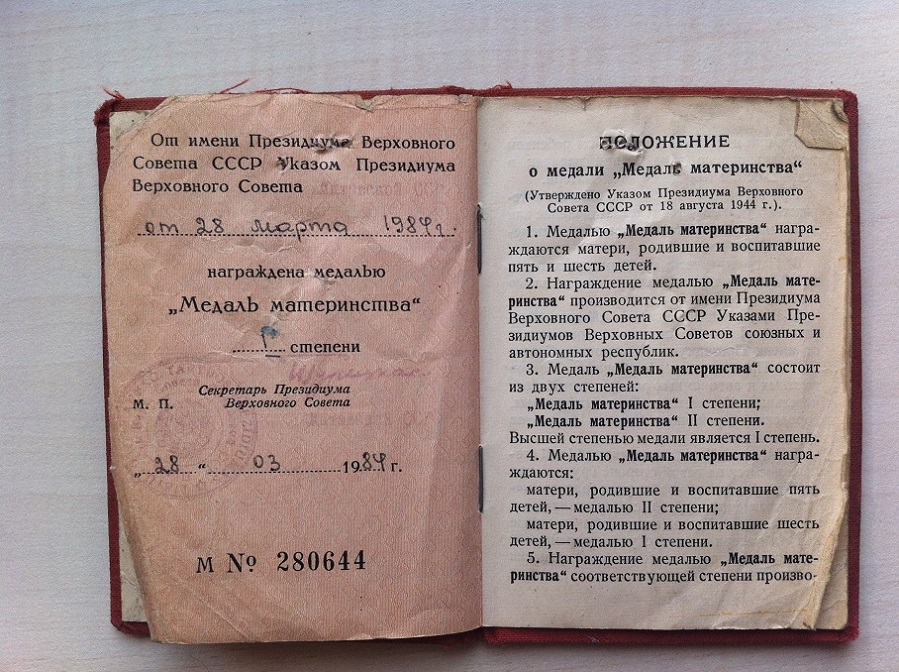 От имени Президиума Верховного
Совета СССР Указом Президиума
Верховного Совета
от 28 марта 1984 г.
награждена медалью
„Медаль материнства“
I степени
Секретарь Президиума
М. П. Верховного Совета
„28“ 03 1984 г.
М № 280644
ПОЛОЖЕНИЕ
о медали „Медаль материнства“
(Утверждено Указом Президиума Верховного
Совета СССР от 18 августа 1944 г.).
1. Медалью „Медаль материнства“ награ-
ждаются матери, родившие и воспитавшие
пять и шесть детей.
2. Награждение медалью „Медаль мате-
ринства“ производится от имени Президиума
Верховного Совета СССР Указами Пре-
зидиумов Верховных Советов союзных и
автономных республик.
3. Медаль „Медаль материнства“ состоит
из двух степеней:
„Медаль материнства“ I степени;
„Медаль материнства“ II степени.
Высшей степенью медали является I степень.
4. Медалью „Медаль материнства“ награ-
ждаются:
матери, родившие и воспитавшие пять
детей, — медалью II степени;
матери, родившие и воспитавшие шесть
детей, — медалью I степени.
5. Награждение медалью „Медаль мате-
ринства“ соответствующей степени произво-